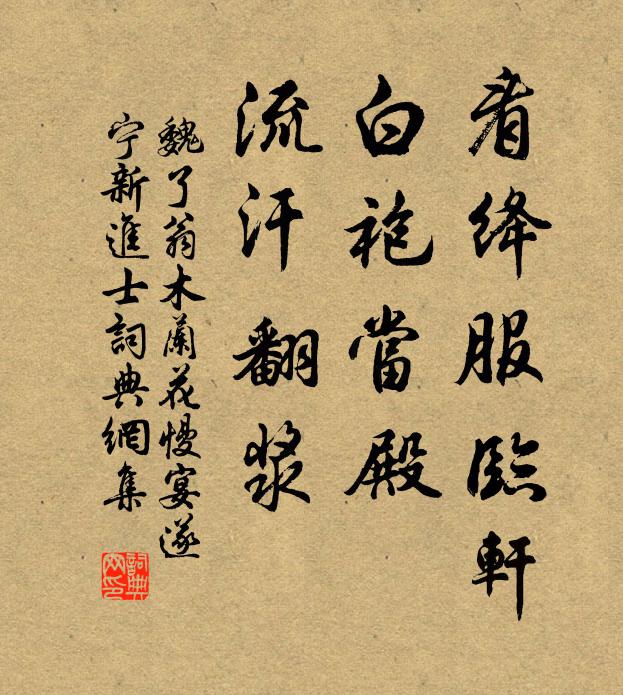 看絳服臨軒
白袍當殿
流汗翻漿
魏了翁木蘭花慢宴遂
宁新進士詞典網集
詞典網印